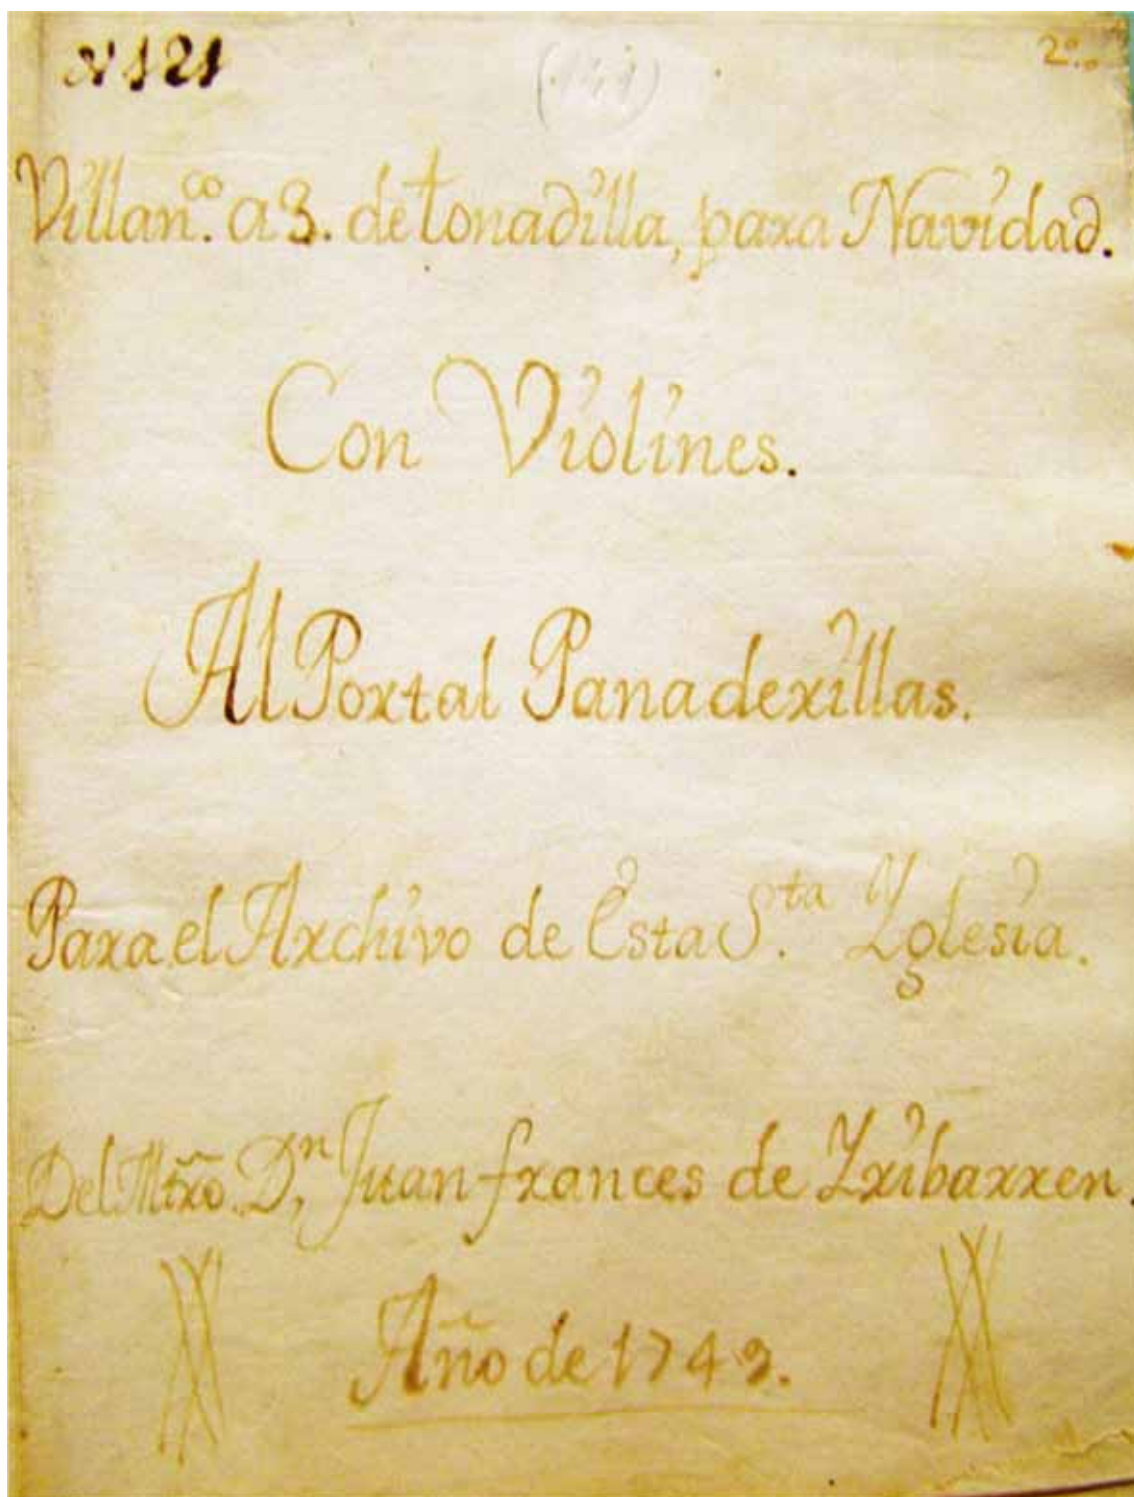 Nº 121
2º.
Villan.co a 3. de tonadilla, para Navidad.
Con Violines.
Al Portal Panaderillas.
Para el Archivo de Esta S.ta Yglesia.
Del Mtrõ. Dn, Juan frances de Yribarren.
Año de